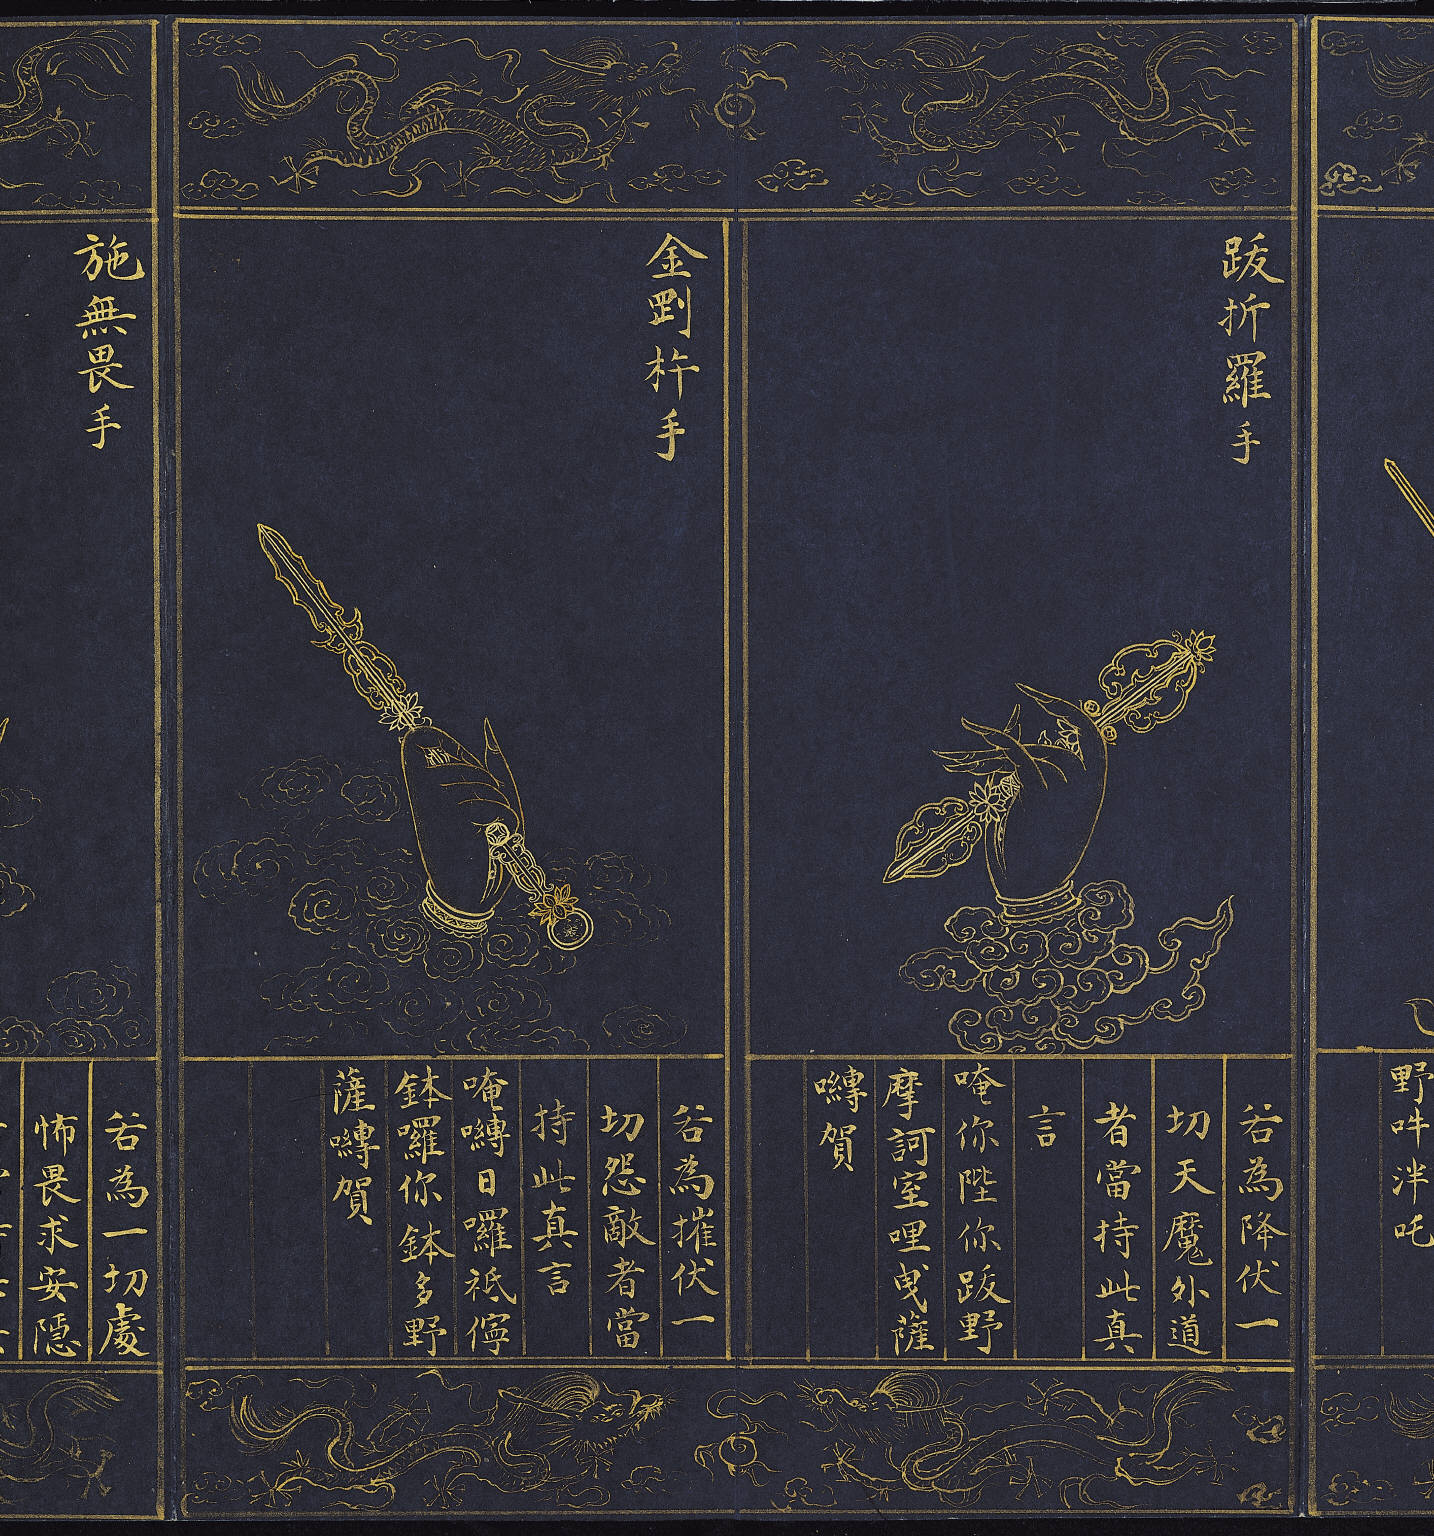 野吽泮吒
跋折羅手
若為降伏一
切天魔外道
者當持此真
言
唵你陛你跋野
摩訶室哩曳薩
嚩賀
金剛杵手
若為摧伏一
切怨敵者當
持此真言
唵嚩日囉祗儜
鉢囉你鉢多野
薩嚩賀
施無畏手
若為一切處
怖畏求安隱